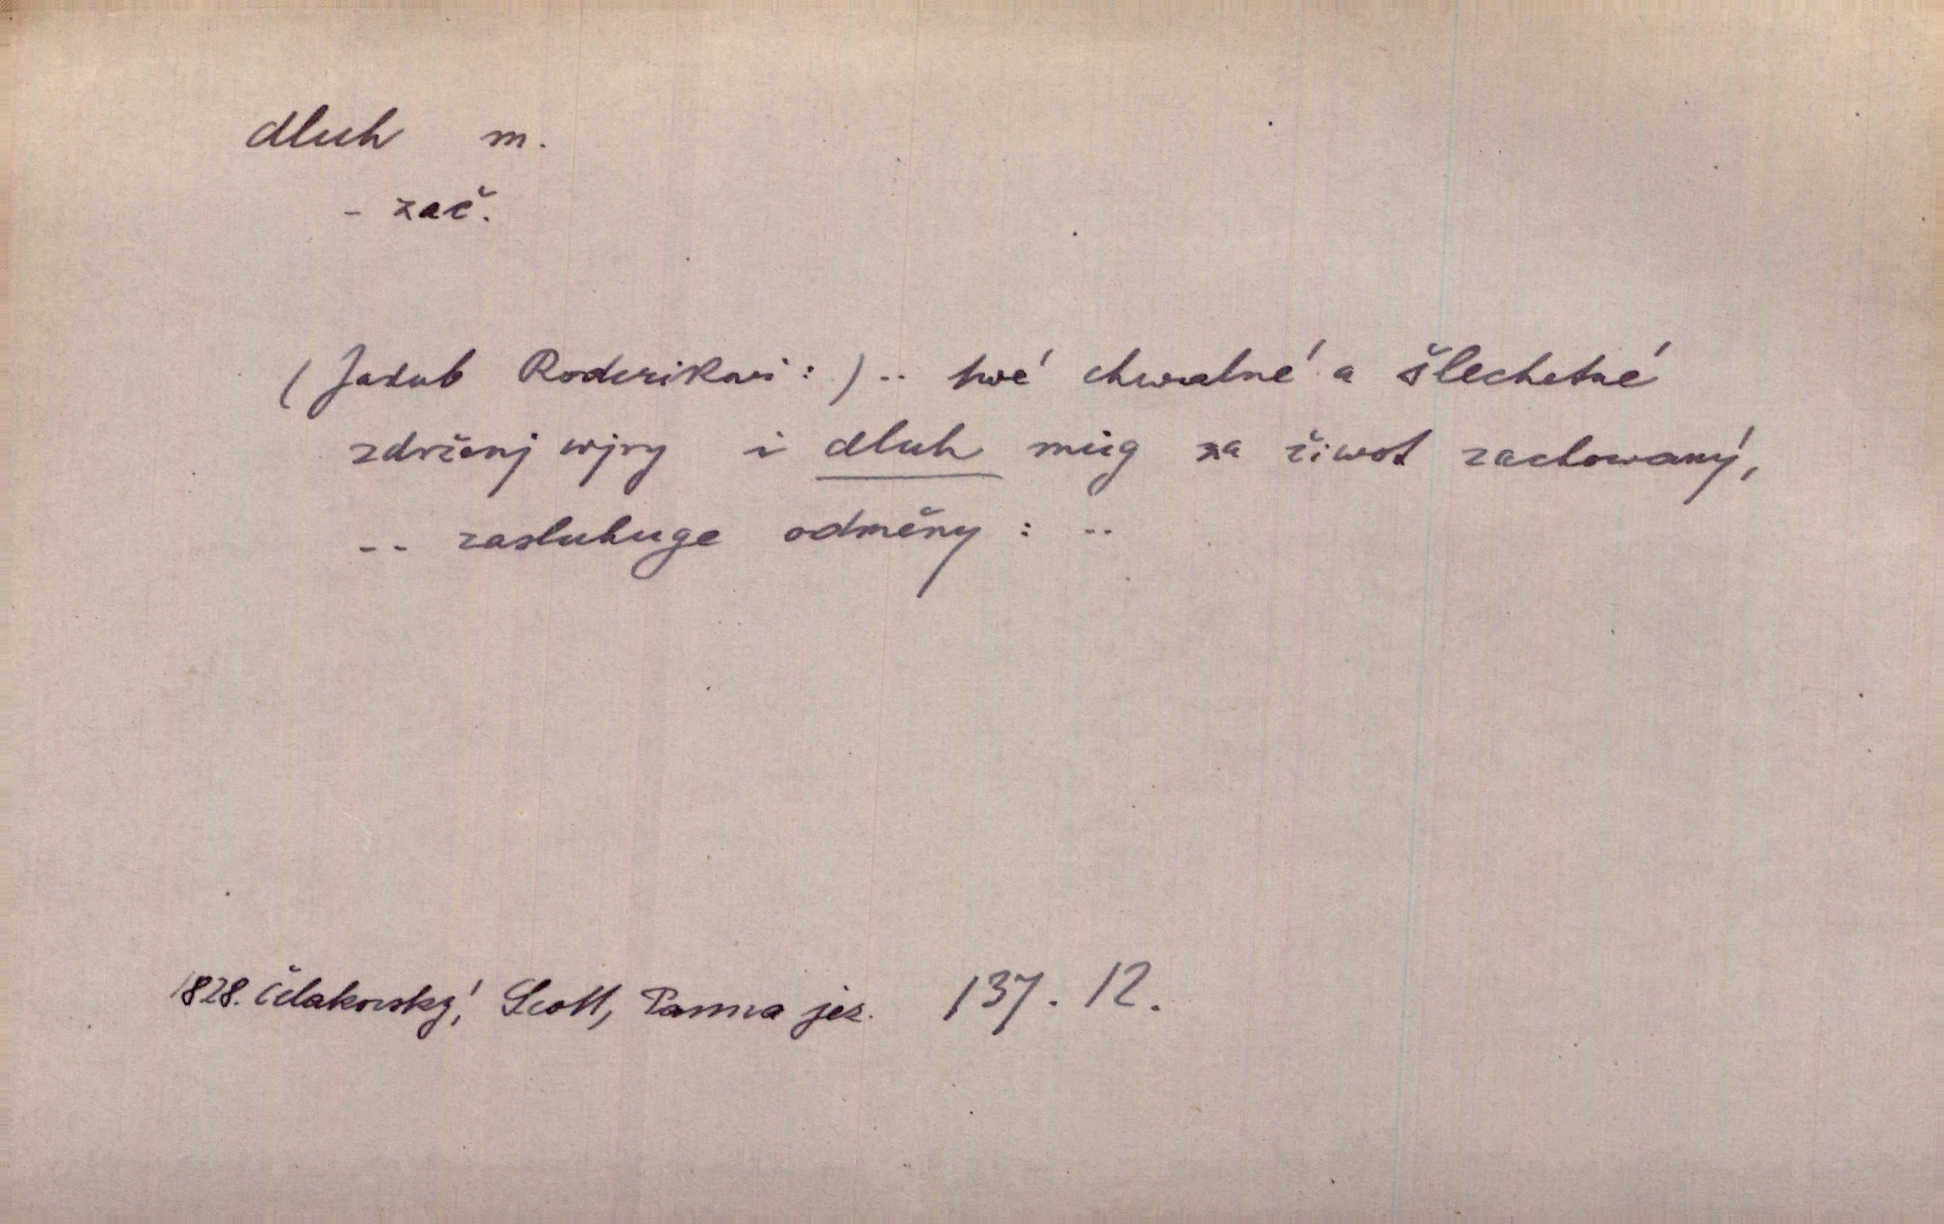 dluh m.
- zač.
(Jakub Roderikowi:).. twé chwalné a šlechetné
zdrženj wjry i dluh můg za žiwot zachowaný,
-- zasluhuge odměny : ..
1828. Čelakovský, Scott, Panna jez. 137. 12.